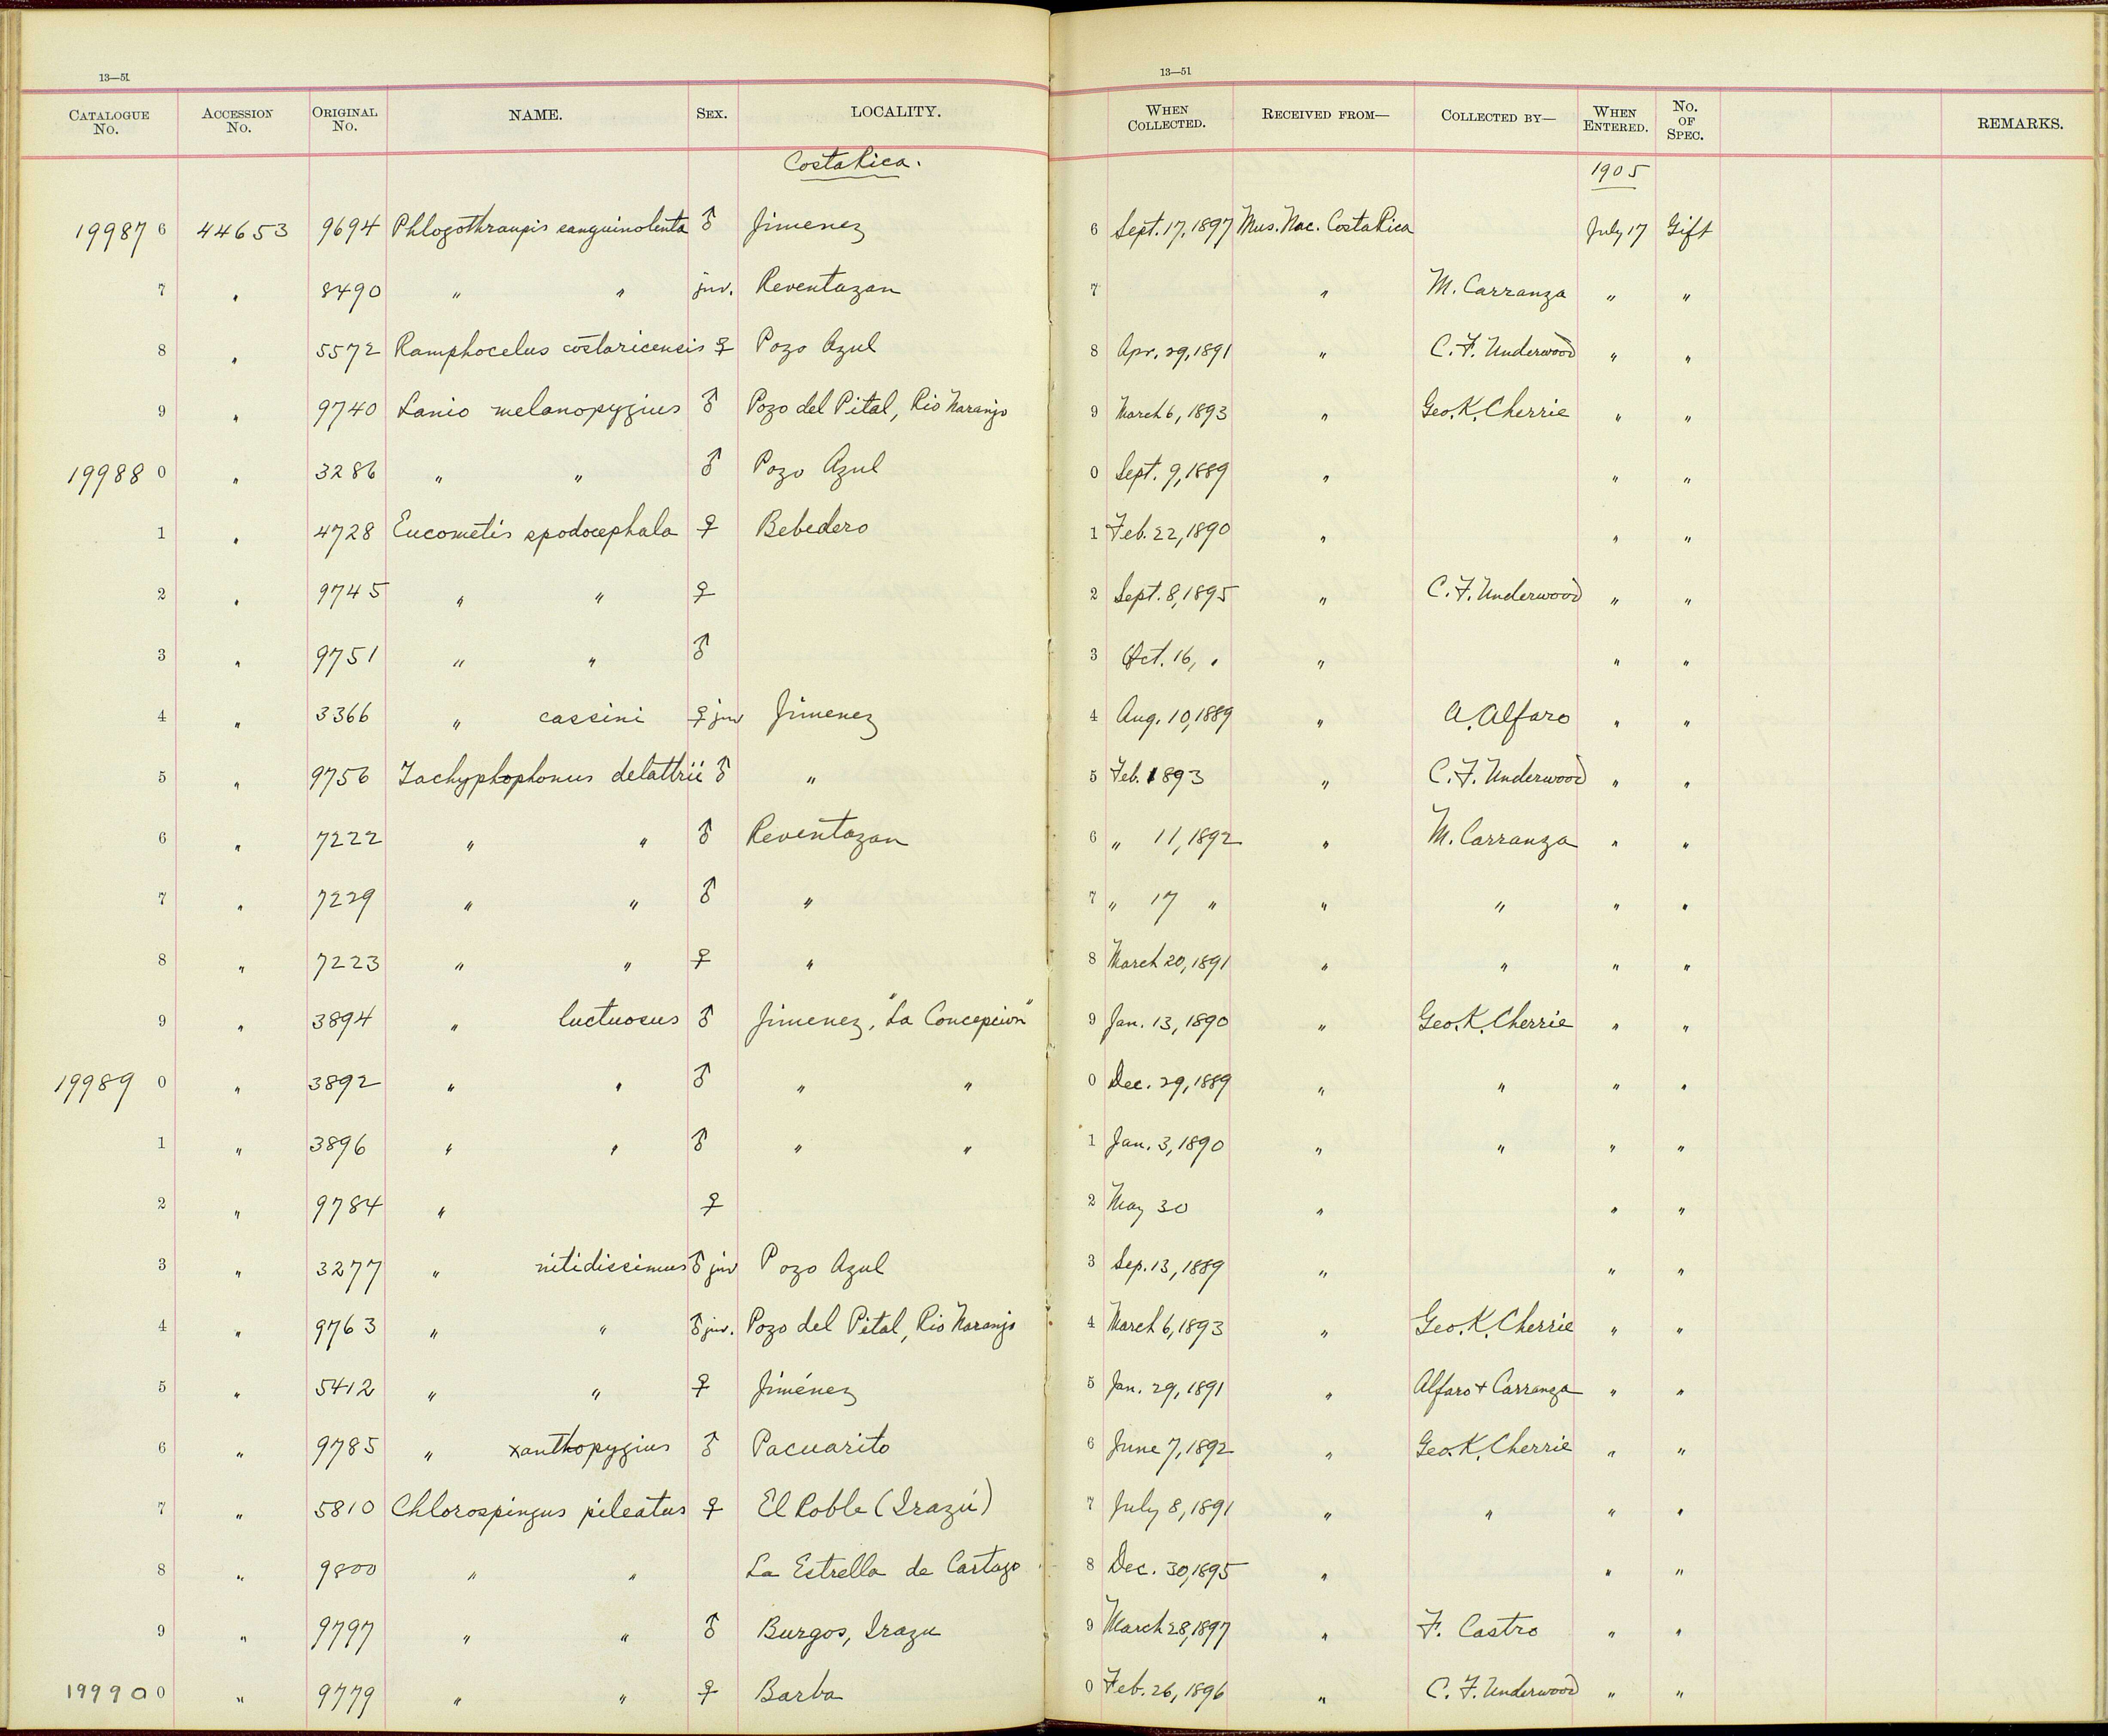 13—51
CATALOGUE No. ACCESSION No. ORIGINAL No. NAME. SEX. LOCALITY.
13—51
WHEN COLLECTED. RECEIVED FROM— COLLECTED BY— WHEN ENTERED. No. OF SPEC. REMARKS.
Costa Rica. 1905
19987 6 44653 9694 Phlogothraupis sanguinolenta ♂ Jimenez 6 Sept. 17, 1897 Mus. Nac. Costa Rica July 17 Gift
7 " 8490 " " juv. Reventazan 7 " M. Carranza " "
8 " 5572 Ramphocelus costaricensis ♀ Pozo Azul 8 Apr. 29, 1891 " C. F. Underwood " "
9 " 9740 Lanio melanopygius ♂ Pozo del Pital, Rio Naranjo 9 March 6, 1893 " Geo. K. Cherrie " "
19988 0 " 3286 " " ♂ Pozo Azul 0 Sept. 9, 1889 " " "
1 " 4728 Eucometis spodocephala ♀ Bebedero 1 Feb. 22, 1890 " " "
2 " 9745 " " ♀ 2 Sept. 8, 1895 " C. F. Underwood " "
3 " 9751 " " ♂ 3 Oct. 16, " " " "
4 " 3366 " cassini ♀ juv Jimenez 4 Aug. 10, 1889 " A. Alfaro " "
5 " 9756 Tachyphophonus delattrii ♂ " 5 Feb. 1893 " C. F. Underwood " "
6 " 7222 " " ♂ Reventazan 6 " 11, 1892 " M. Carranza " "
7 " 7229 " " ♂ " 7 " 17 " " " " "
8 " 7223 " " ♀ " 8 March 20, 1891 " " " "
9 " 3894 " luctuosus ♂ Jimenez, "La Concepcion" 9 Jan. 13, 1890 " Geo. K. Cherrie " "
19989 0 " 3892 " " ♂ " " 0 Dec. 29, 1889 " " " "
1 " 3896 " " ♂ " " 1 Jan. 3, 1890 " " " "
2 " 9784 " ♀ 2 May 30 " " "
3 " 3277 " nitidissimus ♂ juv Pozo Azul 3 Sep. 13, 1889 " " "
4 " 9763 " " ♂ juv. Pozo del Pital, Rio Naranjo 4 March 6, 1893 " Geo. K. Cherrie " "
5 " 5412 " " ♀ Jiménez 5 Jan. 29, 1891 " Alfaro + Carranza " "
6 " 9785 " xanthopygius ♂ Pacuarito 6 June 7, 1892 " Geo. K. Cherrie " "
7 " 5810 Chlorospingus pileatus ♀ El Roble (Irazú) 7 July 8, 1891 " " " "
8 " 9800 " " La Estrella de Cartago 8 Dec. 30, 1895 " " "
9 " 9797 " " ♂ Burgos, Irazu 9 March 28, 1897 " F. Castro " "
19990 0 " 9779 " " ♀ Barba 0 Feb. 26, 1896 " C. F. Underwood " "